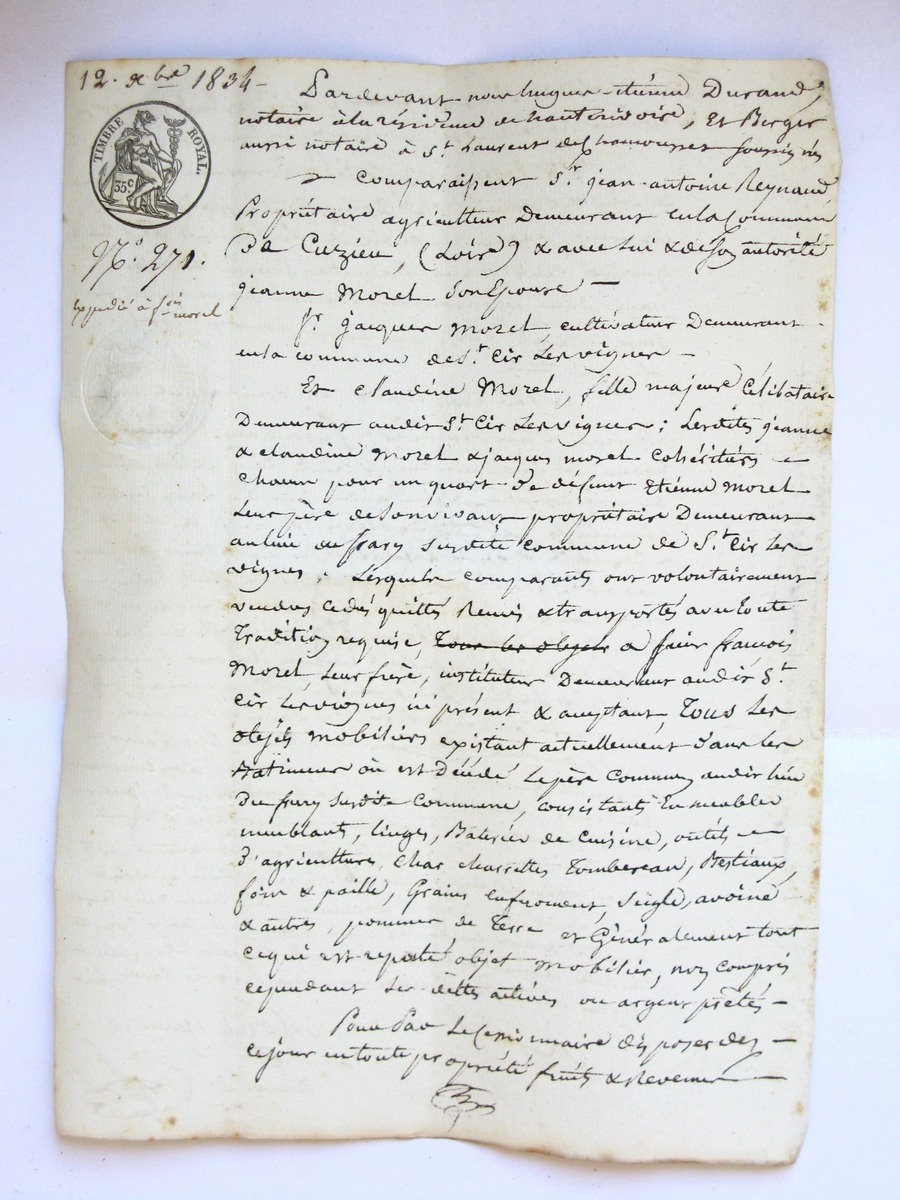 12. xbre 1834
Pardevant nous hugues étiénne Durand,
notaire à la résidence de hauterivoire, Et Berger
aussi notaire à St. Laurent de Chamousset soussignés
TIMBRE ROYAL.
35c.
comparaissent Sr. jean-antoine Reynaud
Propriétaire agriculteur Demeurant en la Commune
N.o 271.
De Cuzieu, (Loire) & avec lui & de son autorité
jeanne Morel Son Epouse —
Expedié à fois morel
Sr. jacques morel, cultivateur Demeurant
en la commune de St. Cir Les vignes —
Et claudine Morel, fille majeure Célibataire
Demeurant audit St. Cir Les vignes; Lesdites jeanne
& claudine Morel & jacques morel Cohéritiers —
chacun pour un quart De défunt Etiénne Morel
Leur père de Son vivant propriétaire Demeurant
au lieu du frary Susdité commune de St. Cir Les
vignes. Lesquels comparants ont volontairement
vendus cédés quittés Remis & transportés avec toute
Tradition requise, Tous les objets à Sieur françois
Morel, Leur frère, instituteur Demeurant audit St.
Cir Les vignes ici présent & acceptant, Tous Les
objéts mobiliers existant actuellement Dans Les
Batiments où est Décédé Le père Commun audit lieu
Du frary Susdite Commune, consistants En meubles
meublants, linges, Baterie de Cuisine, outils —
D'agriculture, Char charrettes Tombereau, Bestiaux,
foin & paille, Grains en froment, Seigle, avoine
& autres, pommes de Terre et Généralement tout
ce qui est reputé objet mobilier, non compris
cependant Les dettes actives ou argent prêtés —
Pour Par Le Cessionnaire disposer dez —
ce jour en toute propriété fruits & Revenus —